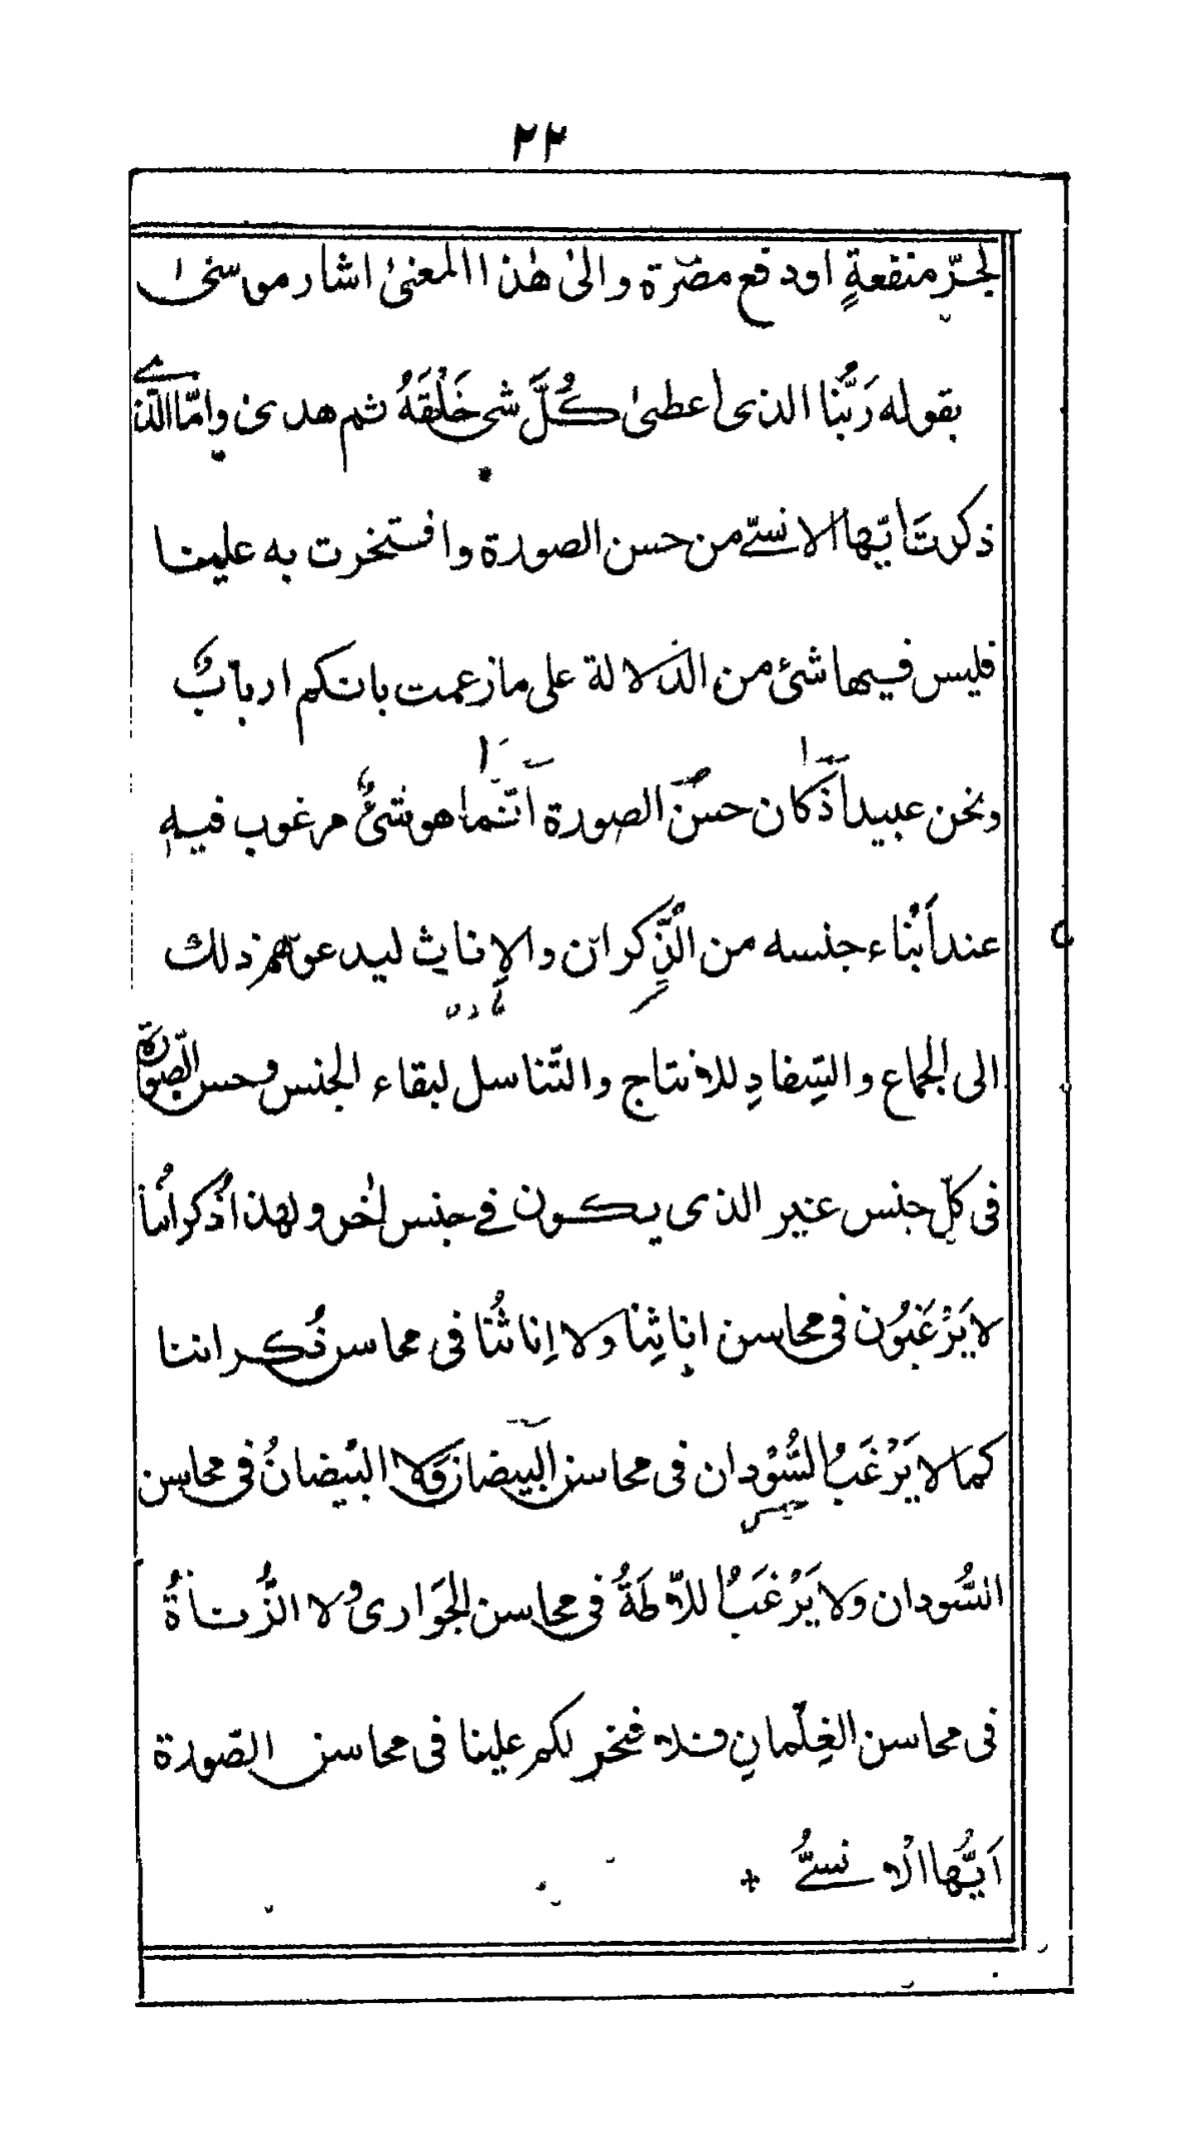 ٢٢
لجرّ منفعةٍ اودفع مضرّة والىٰ هٰذا المعنىٰ اشار موسىٰ
بقوله رَبُّنا الذى اعطىٰ كُلَّ شىٍٔ خَلْقَهُ ثم هدىٰ وامّا الذى
ذكرتَ ايّها الانسىّ من حسن الصورة وافتخرت به علينا
فليس فيها شئ من الدّلالة على ما زعمت بانكم اربابٌ
ونحن عبيد اذ كان حسن الصورة انّما هو شئٌ مرغوب فيه
عند أبْناء جنسه من الذُّكران والاِناث ليدعوهم ذلك
الى الجماع والسِّفادِ للانتاج والتّناسل لبقاء الجنس وحسن الصّورة
فى كلّ جنس غير الذى يكون فى جنس اٰخر ولهذا ذُكرانُنا
لا يَرْغَبُون فى محاسن اناثِنا ولا اِناثُنا فى محاسن ذُكراننا
كما لا يَرْغَبُ السُّوْدان فى محاسن البِيضان ولا البِيْضانُ فى محاسن
السُّودان ولا يَرْغَبُ اللّاطَةُ فى محاسن الجَوَارى ولا الزُّناةُ
فى محاسن الغِلْمانِ فلا فخر لكم علينا فى محاسن الصّورة
اَيُّها الْانسىُّ +